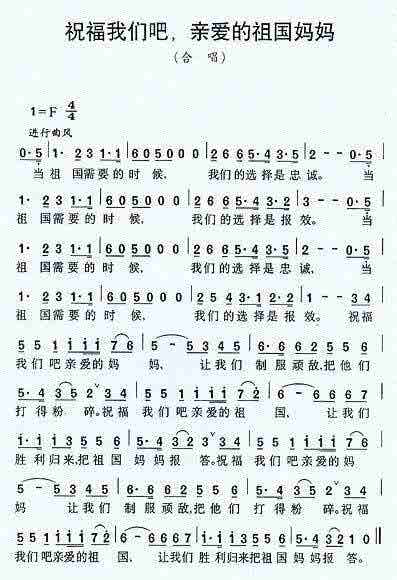 祝福我们吧，亲爱的祖国妈妈
（合 唱）
1=F 4/4
进行曲风
0·5 | 1· 2 3 1·1 | 6 0 5 0 0 0 | 2 6 6 5·4 3·5 | 2 - - 0·5 |
当 祖 国需要的时 候， 我们的选择是忠诚。 当
1· 2 3 1·1 | 6 0 5 0 0 0 | 2 6 6 5·4 3·5 | 2 - - 0·5 |
祖 国需要的时 候， 我们的选择是报效。 当
1· 2 3 1·1 | 6 0 5 0 0 0 | 2 6 6 5·4 3·5 | 2 - - 0·5 |
祖 国需要的时 候， 我们的选择是忠诚， 当
1· 2 3 1·1 | 6 0 5 0 0 0 | 2 5 4 3·2 | 1 - 3 4 |
祖 国需要的时 候， 我们的选择是报效。 祝福
5 5 1 1 1 1 7 6 | 5 - 5 3 4 | 5 5 1 1 1 7 1 7 6 |
我们吧亲爱的妈 妈， 让我们 制服顽敌，把他们
5·4 3 5 2 3 4 | 5 5 1 1 1 2 1 | 6 - 6 6 6 7 |
打得粉 碎。祝福 我们吧亲爱的祖 国， 让我们
胜利归来，把祖国妈妈报 答。祝福 我们吧亲爱的妈
5 - 5 3 4 | 5 5 1 1 1 7 1 7 6 | 5·4 3 5 2 3 4 |
妈 让我们 制服顽敌，把他们 打得粉碎。祝福
我们吧亲爱的祖 国， 让我们胜利归来把祖国妈妈报答。